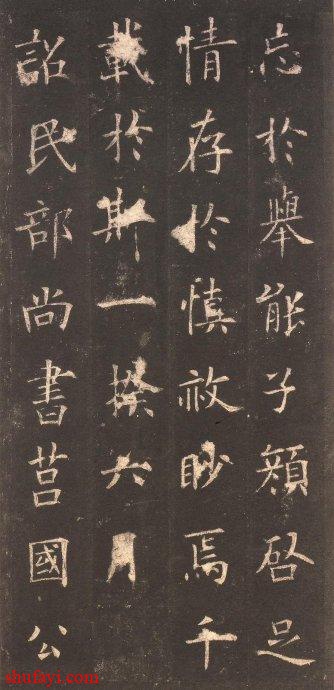 忘於舉能子頽啓足
情存於慎祓眇焉千
載於斯一揆六月
詔民部尚書莒國公
shufayi.com